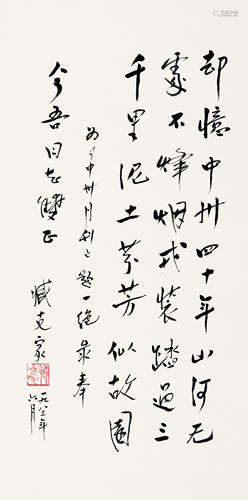 却忆中州四十年山河无
处不烽烟戎装踏过三
千里泥土芬芳似故园
为中州月刊题一绝录奉
今吾同志双正
臧克家
一九八三年
六月